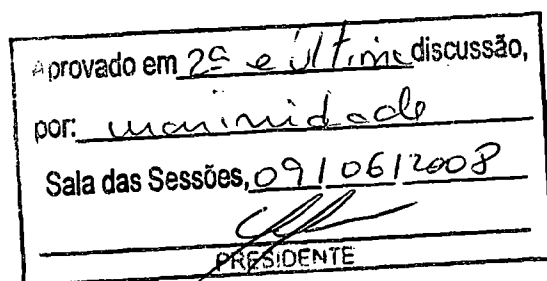 Aprovado em 2ª e última discussão,
por: unanimidade
Sala das Sessões, 09/06/2008
PRESIDENTE